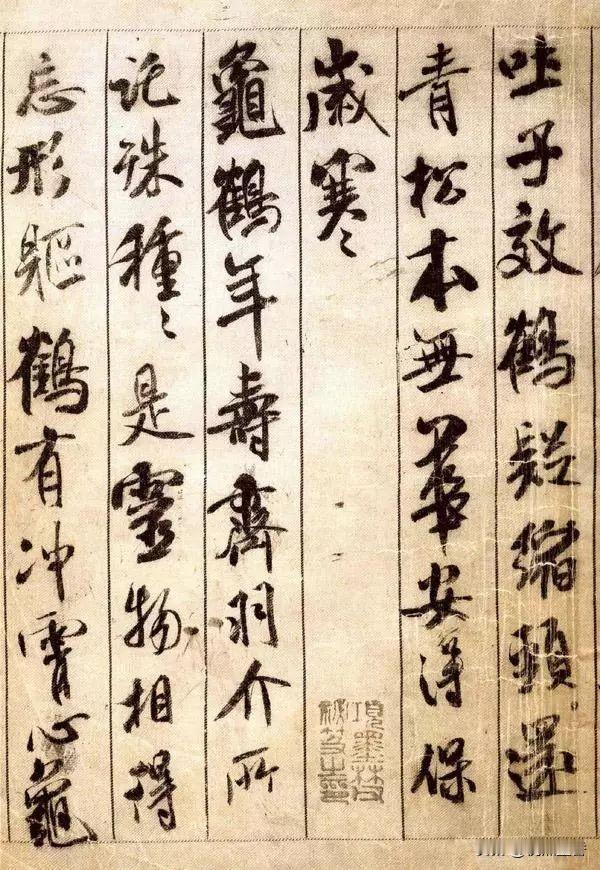 吐子效鶴疑縮頸還
青松本無華安得保
歲寒〻
龜鶴年壽齊羽介所
託殊種〻是靈物相得
忘形軀鶴有冲霄心龜
項墨林父
秘笈之印